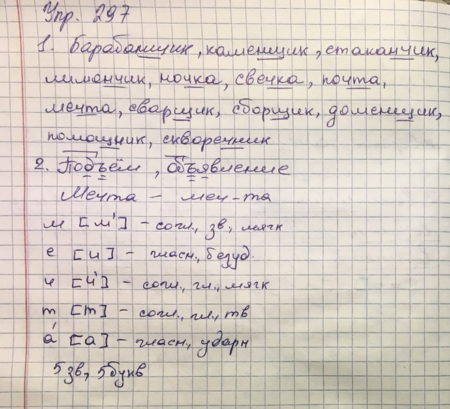 Упр. 297
1. Барабанщик, каменщик, стаканчик,
лимончик, ночка, свечка, почта,
мечта, сварщик, сборщик, доменщик,
помощник, скворечник
2. Подъём, объявление
Мечта – меч-та
м [м'] – согл., зв., мягк
е [и] – гласн., безуд.
ч [ч'] – согл., гл., мягк
т [т] – согл., гл., тв
а́ [а] – гласн., ударн
5 зв, 5 букв